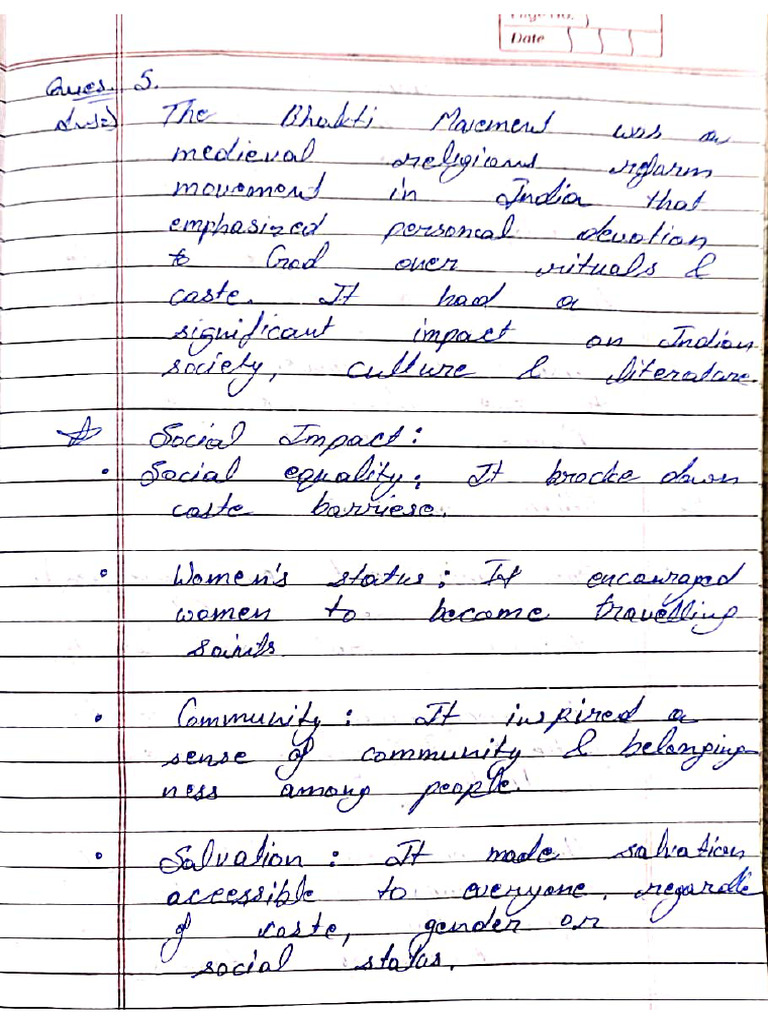 Page No.
Date
Ques. 5.
Ans)
The Bhakti Movement was a
medieval religious reform
movement in India that
emphasized personal devotion
to God over rituals &
caste. It had a
significant impact on Indian
society, culture & literature.
Social Impact:
• Social equality: It brocke down
caste barriese.
• Women's status: It encouraged
women to become travelling
saints.
• Community: It inspired a
sense of community & belonging
ness among people.
• Salvation: It made salvation
accessible to everyone, regardle
of caste, gender or
social status.